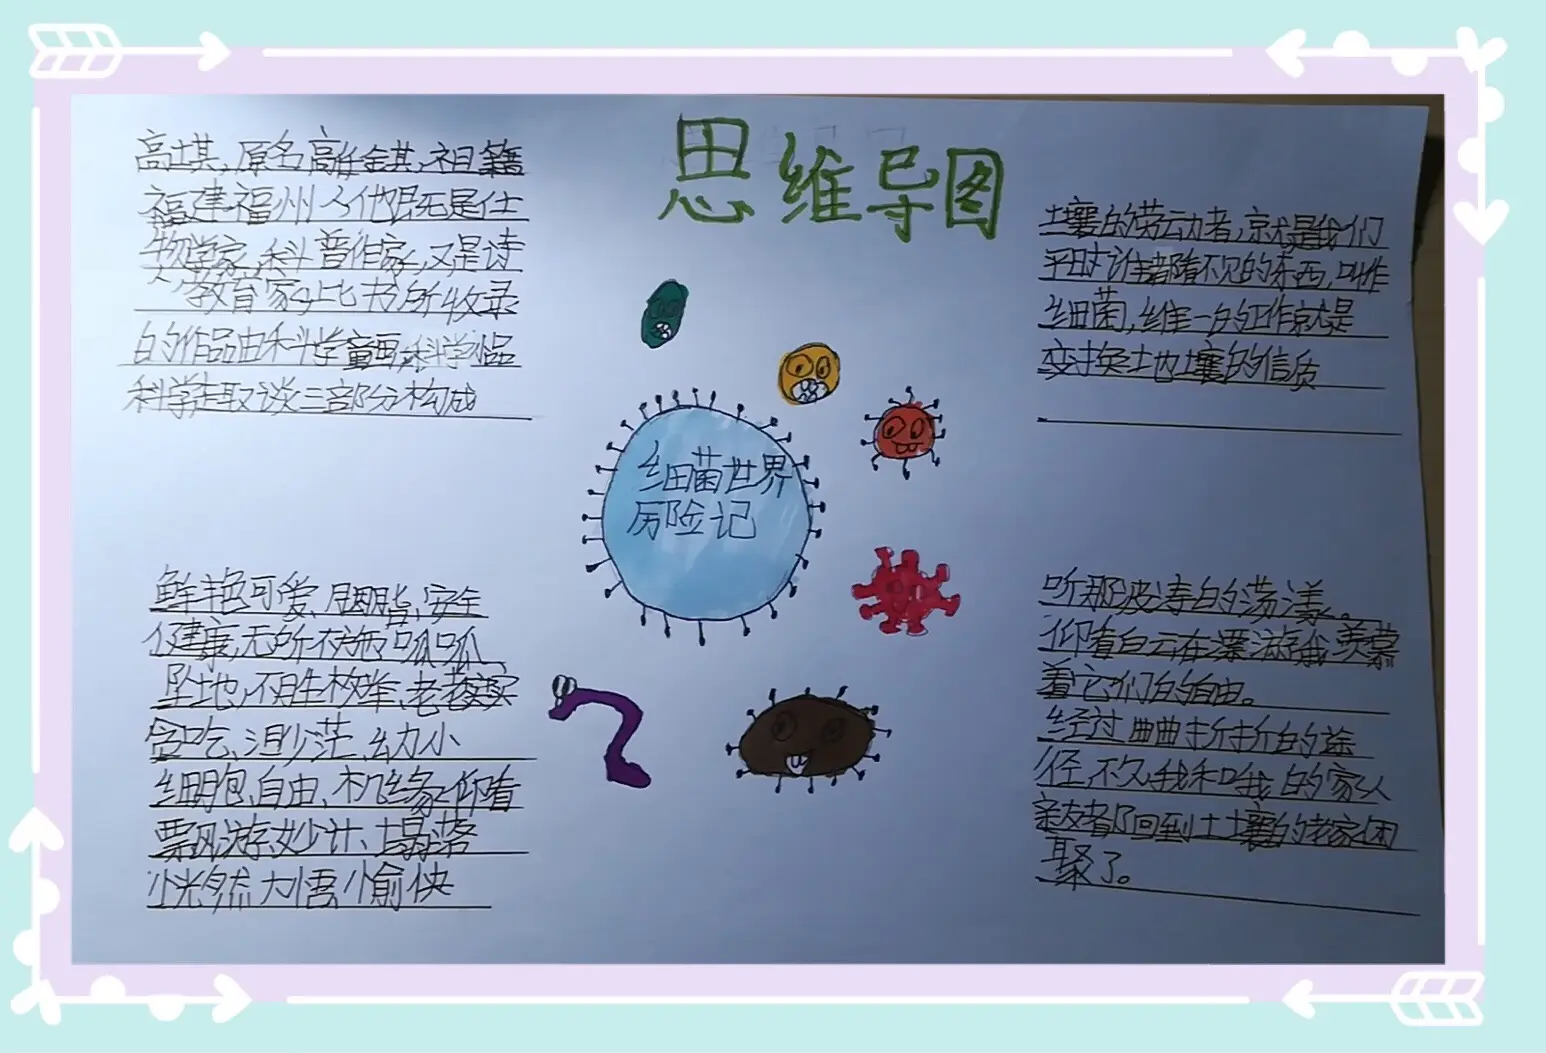 思维导图
高士其,原名高仕錤,祖籍
福建福州人他既是
物学家,科普作家,又是诗
人教育家,此书所收录
的作品由科学童话,科学小品
科学趣谈三部分构成
细菌世界
历险记
土壤的劳动者,就是我们
平时谁都瞧不见的东西,叫作
细菌,维一的工作就是
变换土地壤的信质
鲜艳可爱、胭脂、安全
健康,无所不 呱呱
坠地,不胜枚举、老
贪吃、渺茫、幼小
细胞、自由、机缘、仰看
飘游、妙计、塌落
恍然大悟愉快
听那波涛的荡漾。
仰看白云在飘 我羡慕
着它们的自由。
经过曲曲折折的途
径,不久,我和我的家人
亲友都回到土壤的老家团
聚了。